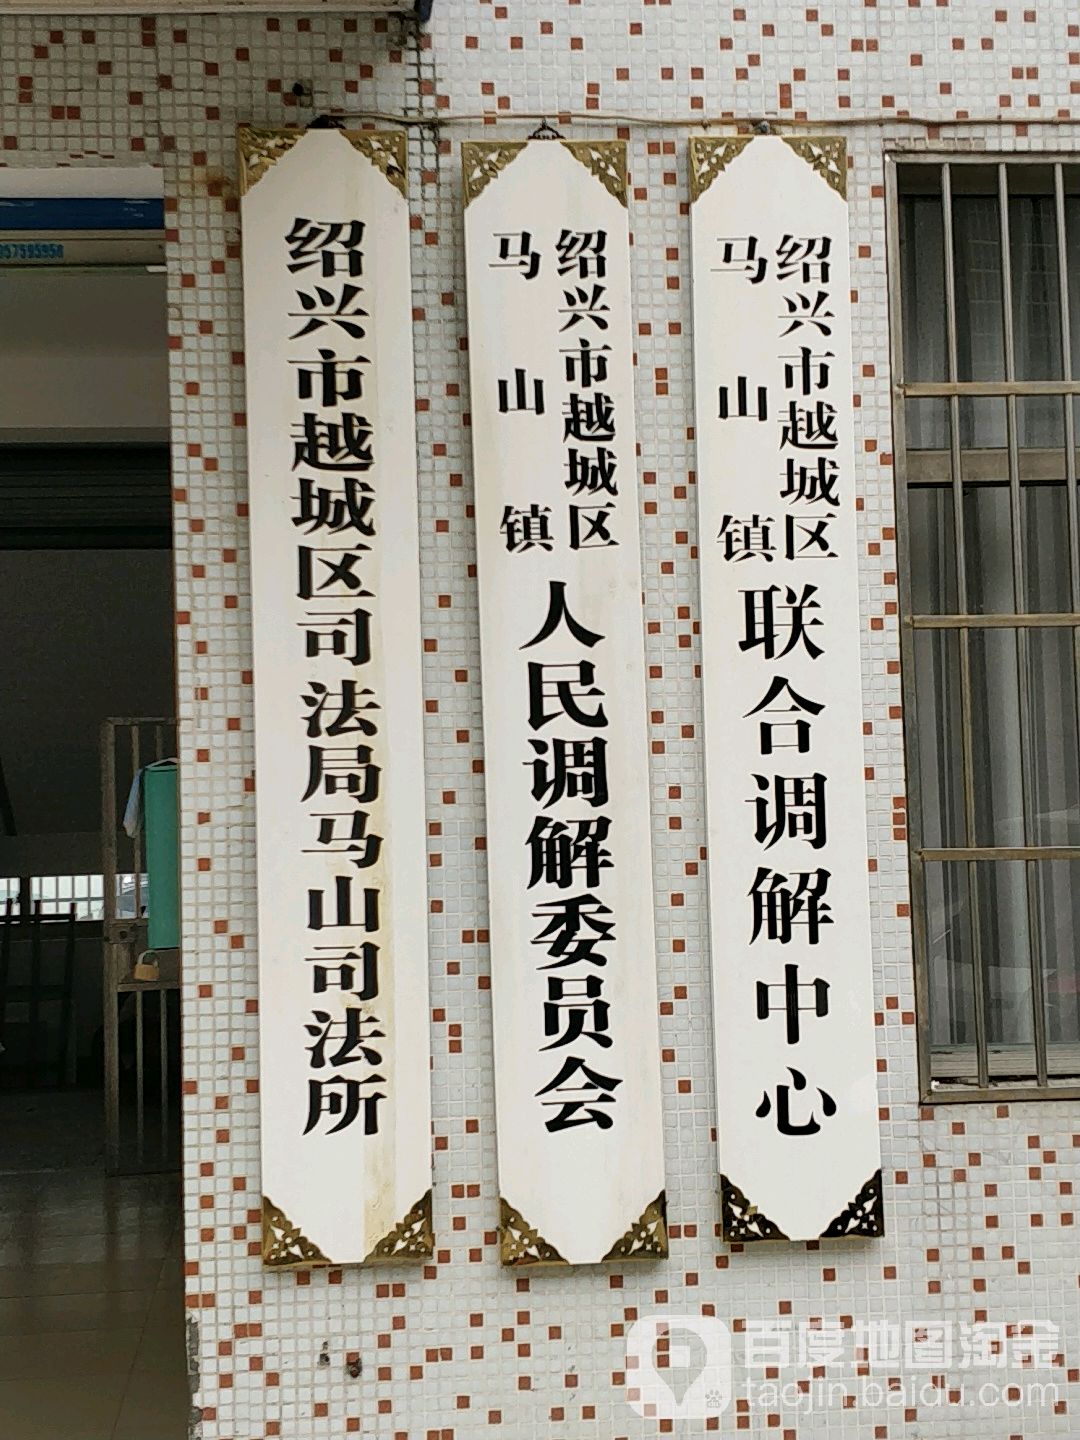 绍兴市越城区司法局马山司法所
绍兴市越城区
马山镇
人民调解委员会
绍兴市越城区
马山镇
联合调解中心
百度地图淘金
taojin.baidu.com